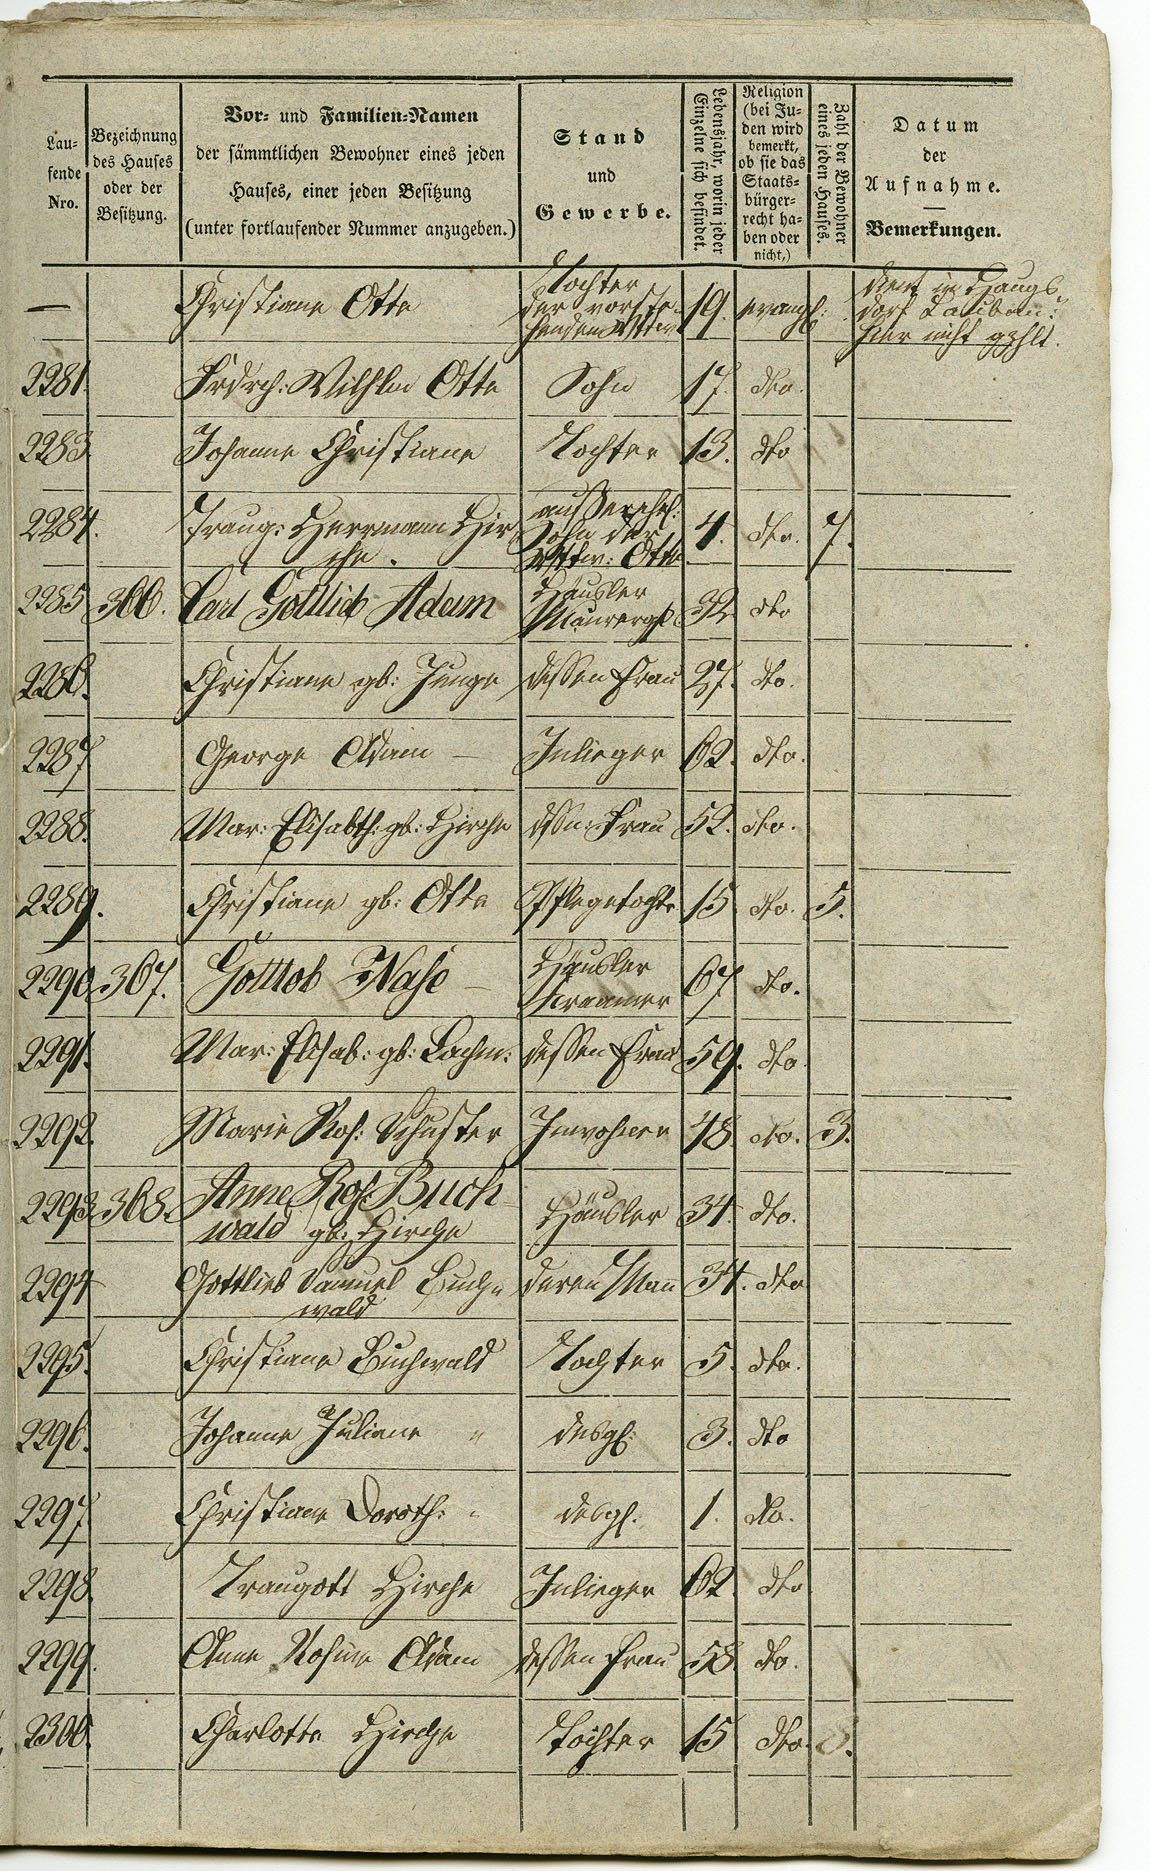 Laufende Nro.
Bezeichnung des Hauses oder der Besitzung.
Vor- und Familien-Namen
der sämmtlichen Bewohner eines jeden
Hauses, einer jeden Besitzung
(unter fortlaufender Nummer anzugeben.)
Stand
und
Gewerbe.
Lebensjahr, worin jeder Einzelne sich befindet.
Religion (bei Juden wird bemerkt, ob sie das Staatsbürgerrecht haben oder nicht.)
Zahl der Bewohner eines jeden Hauses.
Datum
der
Aufnahme.
Bemerkungen.
— Christiane Otto Tochter der vorstehenden Wttwe 19. evangl: dient in Haugsdorf Lauban: hier nicht gzhlt.
2281. Frdrch: Wilhlm Otto Sohn 17. dto.
2283. Johanne Christiane Tochter 13. dto
2284. Traug: Herrmann Hirche. außerehel: Sohn der Wttw: Otto. 4. dto. 7.
2285 366. Carl Gottlieb Adam Häusler Maurergs. 32 dto
2286. Christiane gb: Junge dessen Frau 27. dto.
2287 George Adam — Inlieger 62. dto.
2288. Mar: Elisabth: gb: Hirche dssn: Frau 52. dto.
2289. Christiane gb: Otto Pflegetochtr 15 dto. 5.
2290. 367. Gottlob Nase — Häusler Kraamer 67 dto.
2291. Mar: Elisab: gb: Lachm: dessen Frau 59. dto.
2292. Marie Ros: Schuster Inwohner 48. dto. 3.
2293 368. Anne Ros: Buchwald gb: Hirche Häusler 34. dto.
2294 Gottlieb Samuel Buchwald deren Man 34. dto
2295. Christiane Buchwald Tochter 5. dto.
2296. Johanne Juliane " desgl: 3. dto
2297. Christiane Doroth: " desgl. 1. dto.
2298. Traugott Hirche Inlieger 62 dto
2299. Anne Rosine Adam dessen Frau 58. dto.
2300. Charlotte Hirche Tochter 15 dto. 8.